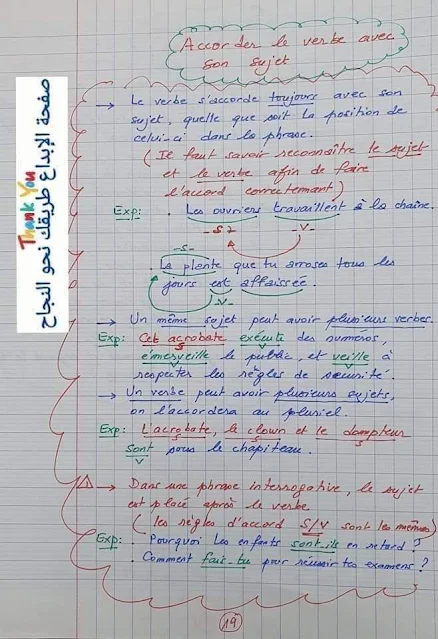 Accorder le verbe avec
son sujet
→ Le verbe s'accorde toujours avec son
sujet, quelle que soit la position de
celui-ci dans la phrase.
(Il faut savoir reconnaître le sujet
et le verbe afin de faire
l'accord correctement)
Exp: . Les ouvriers travaillent à la chaîne.
-S- -V-
-S-
. La plante que tu arroses tous les
jours est affaissée.
-V-
→ Un même sujet peut avoir plusieurs verbes.
Exp: Cet acrobate exécute des numéros,
S V
émerveille le public, et veille à
V V
respecter les règles de sécurité.
→ Un verbe peut avoir plusieurs sujets,
on l'accordera au pluriel.
Exp: L'acrobate, le clown et le dompteur
S S S
sont sous le chapiteau.
V
⚠ → Dans une phrase interrogative, le sujet
est placé après le verbe.
(les règles d'accord S/V sont les mêmes)
Exp: . Pourquoi les enfants sont-ils en retard ?
. Comment fais-tu pour réussir tes examens ?
19
Thank You
صفحة الإبداع طريقك نحو النجاح